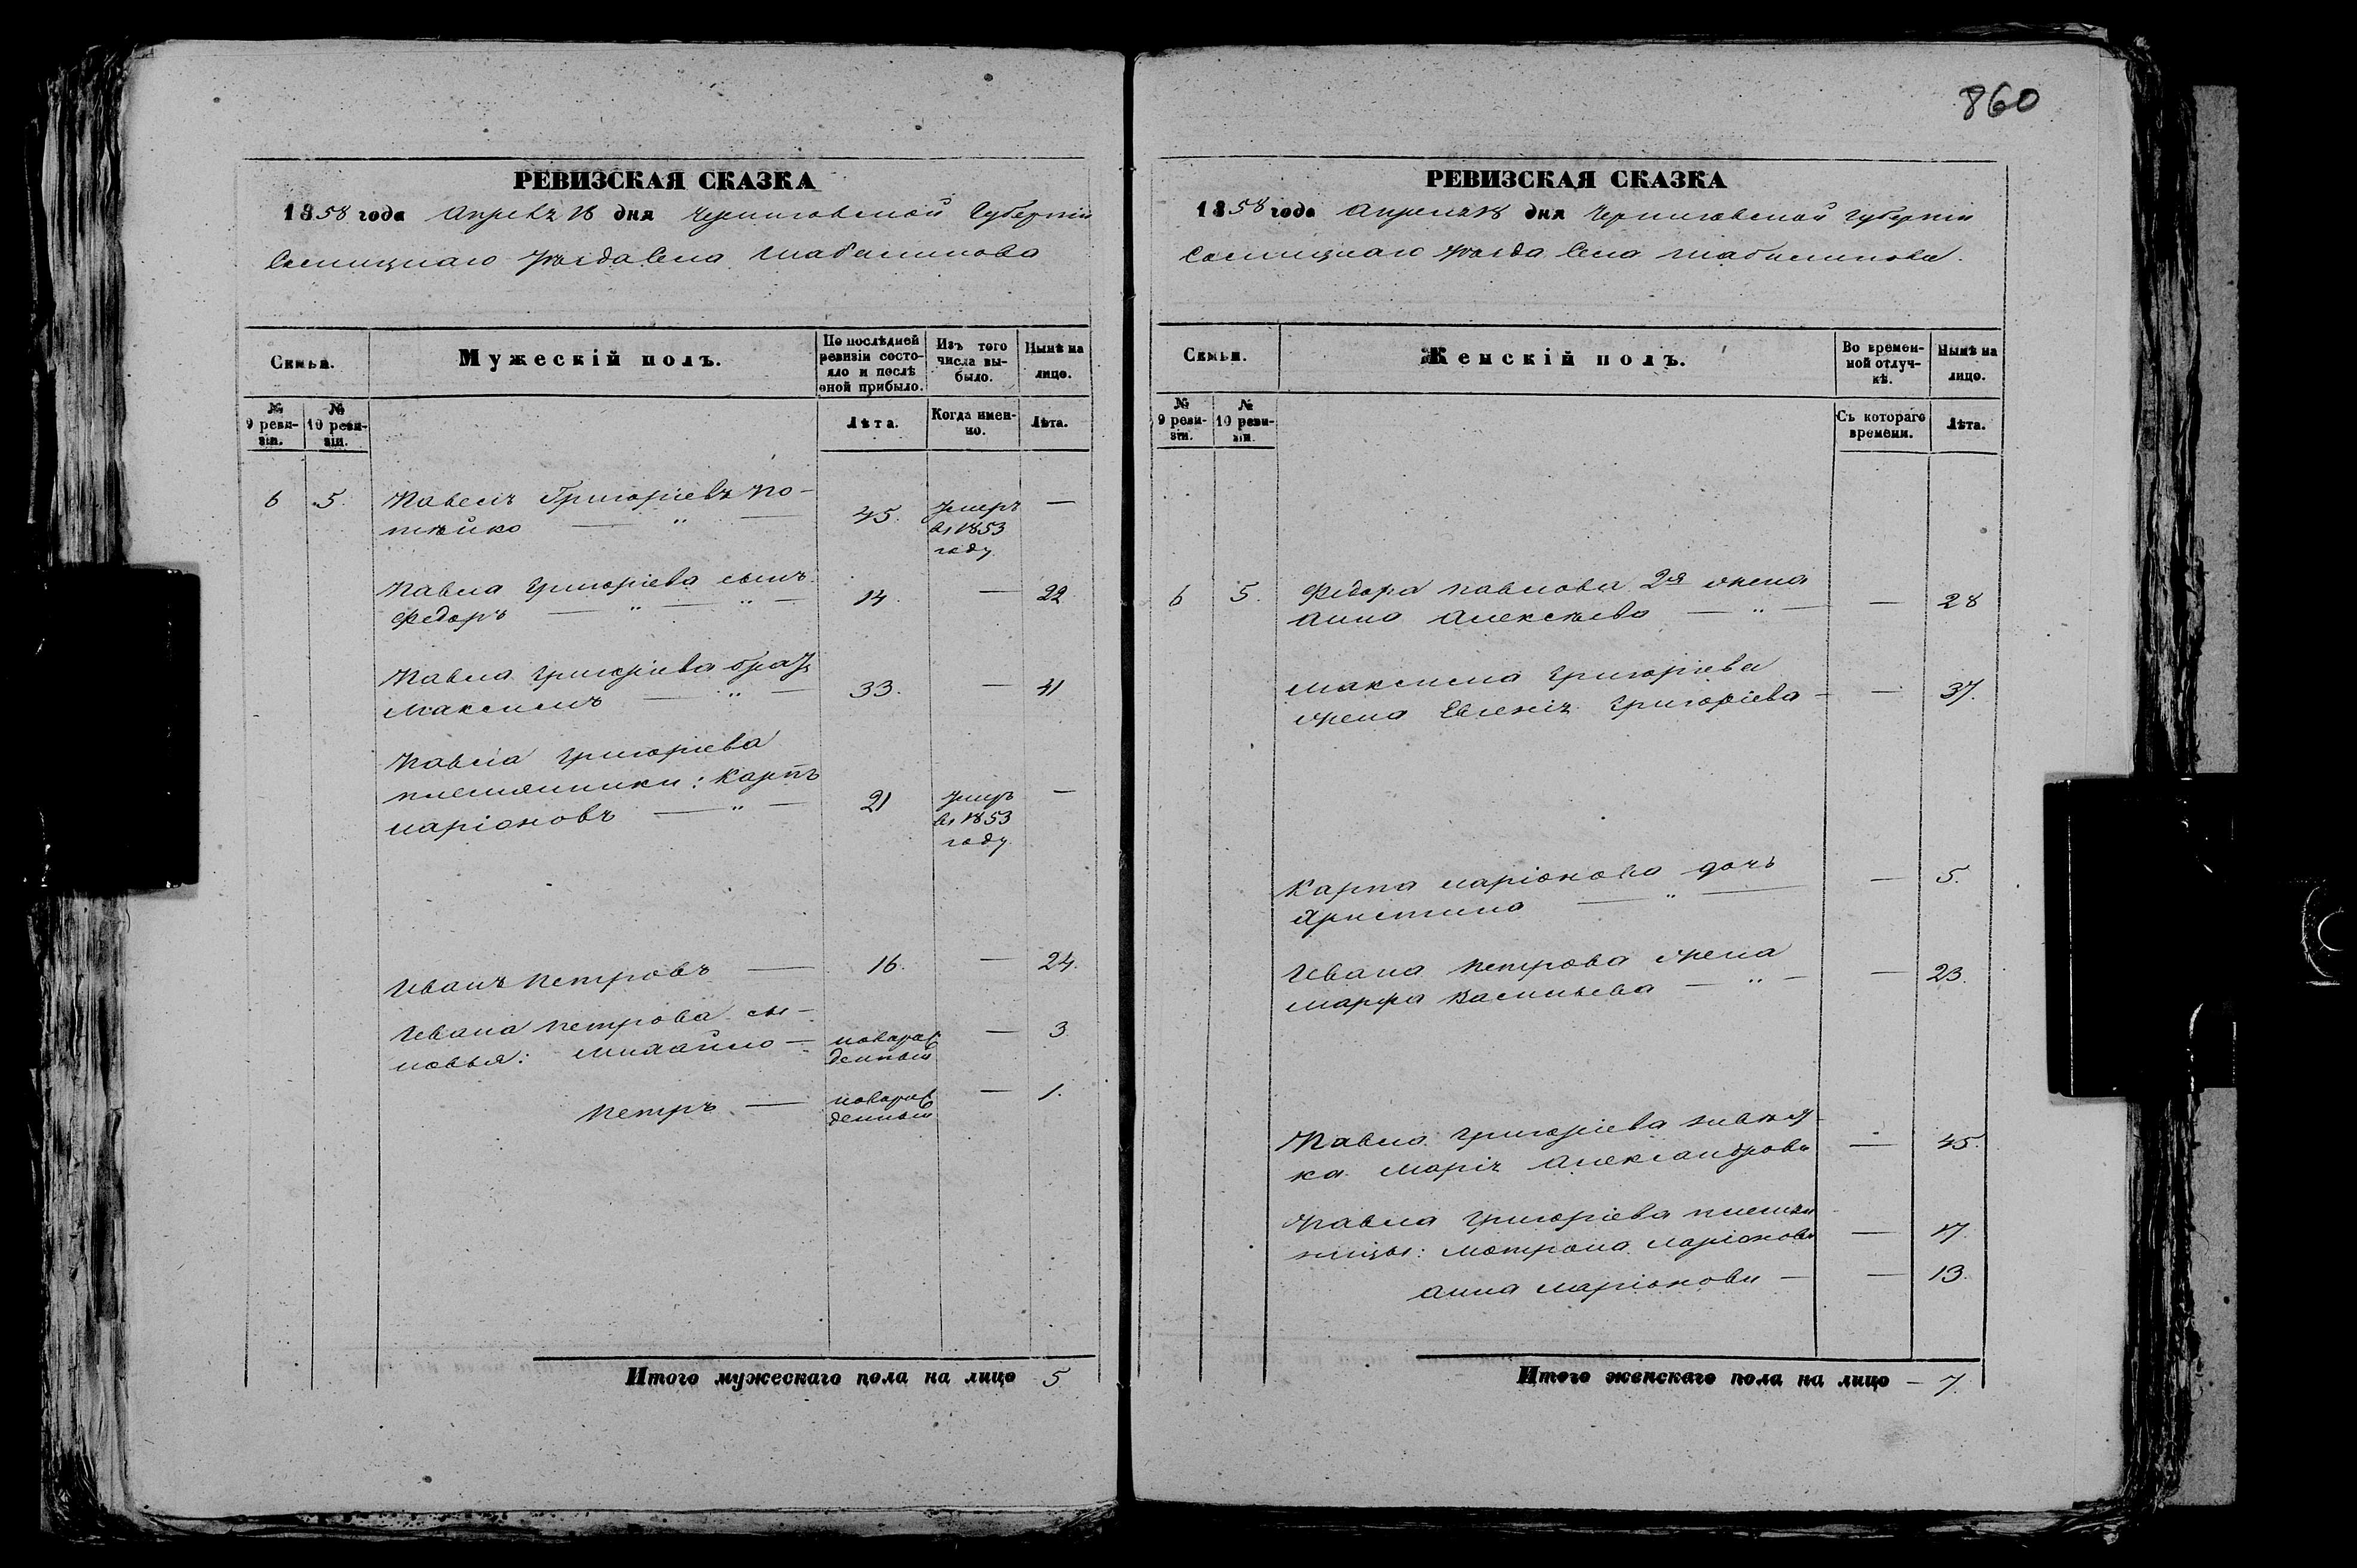 860
РЕВИЗСКАЯ СКАЗКА
1858 года Апреля 18 дня Черниговской Губерніи
Сосницкаго Уѣзда Села Шабалинова
Семьи.
Мужескій полъ.
По послѣдней ревизіи состояло и послѣ оной прибыло.
Изъ того числа выбыло.
Нынѣ на лицо.
№ 9 ревизіи.
№ 10 ревизіи.
Лѣта.
Когда именно.
Лѣта.
6 5. Павелъ Григорьевъ По-
тѣйко — " — 45. Умеръ въ 1853 году —
Павла Григоріева сынъ
Федоръ — " — " — 14. — 22
Павла Григоріева братъ
Максимъ — " — 33. — 41
Павла Григоріева
племянники: Карпъ
Ларіоновъ — " — 21 Умеръ въ 1853 году —
Иванъ Петровъ — 16. — 24.
Ивана Петрова сы-
новья: Михайло — новорожденный — 3
Петръ — новорожденный — 1.
Итого мужескаго пола на лицо 5
РЕВИЗСКАЯ СКАЗКА
1858 года Апреля 18 дня Черниговской Губерніи
Сосницкаго Уѣзда Села Шабалинова.
Семьи.
Женскій полъ.
Во временной отлучкѣ.
Нынѣ на лицо.
№ 9 ревизіи.
№ 10 ревизіи.
Съ котораго времени.
Лѣта.
6 5. Федора Павлова 2я жена
Анна Алексѣева — " — — 28
Максима Григоріева
жена Евгенія Григоріева — — 37.
Карпа Ларіонова дочь
Христина — " — — 5.
Ивана Петрова жена
Марфа Васильева — " — — 23.
Павла Григоріева невѣст-
ка Марія Александрова — 45.
Павла Григоріева племян
ницы: Мотрона Ларіонова — 17.
Анна Ларіонова — — 13.
Итого женскаго пола на лицо — 7.